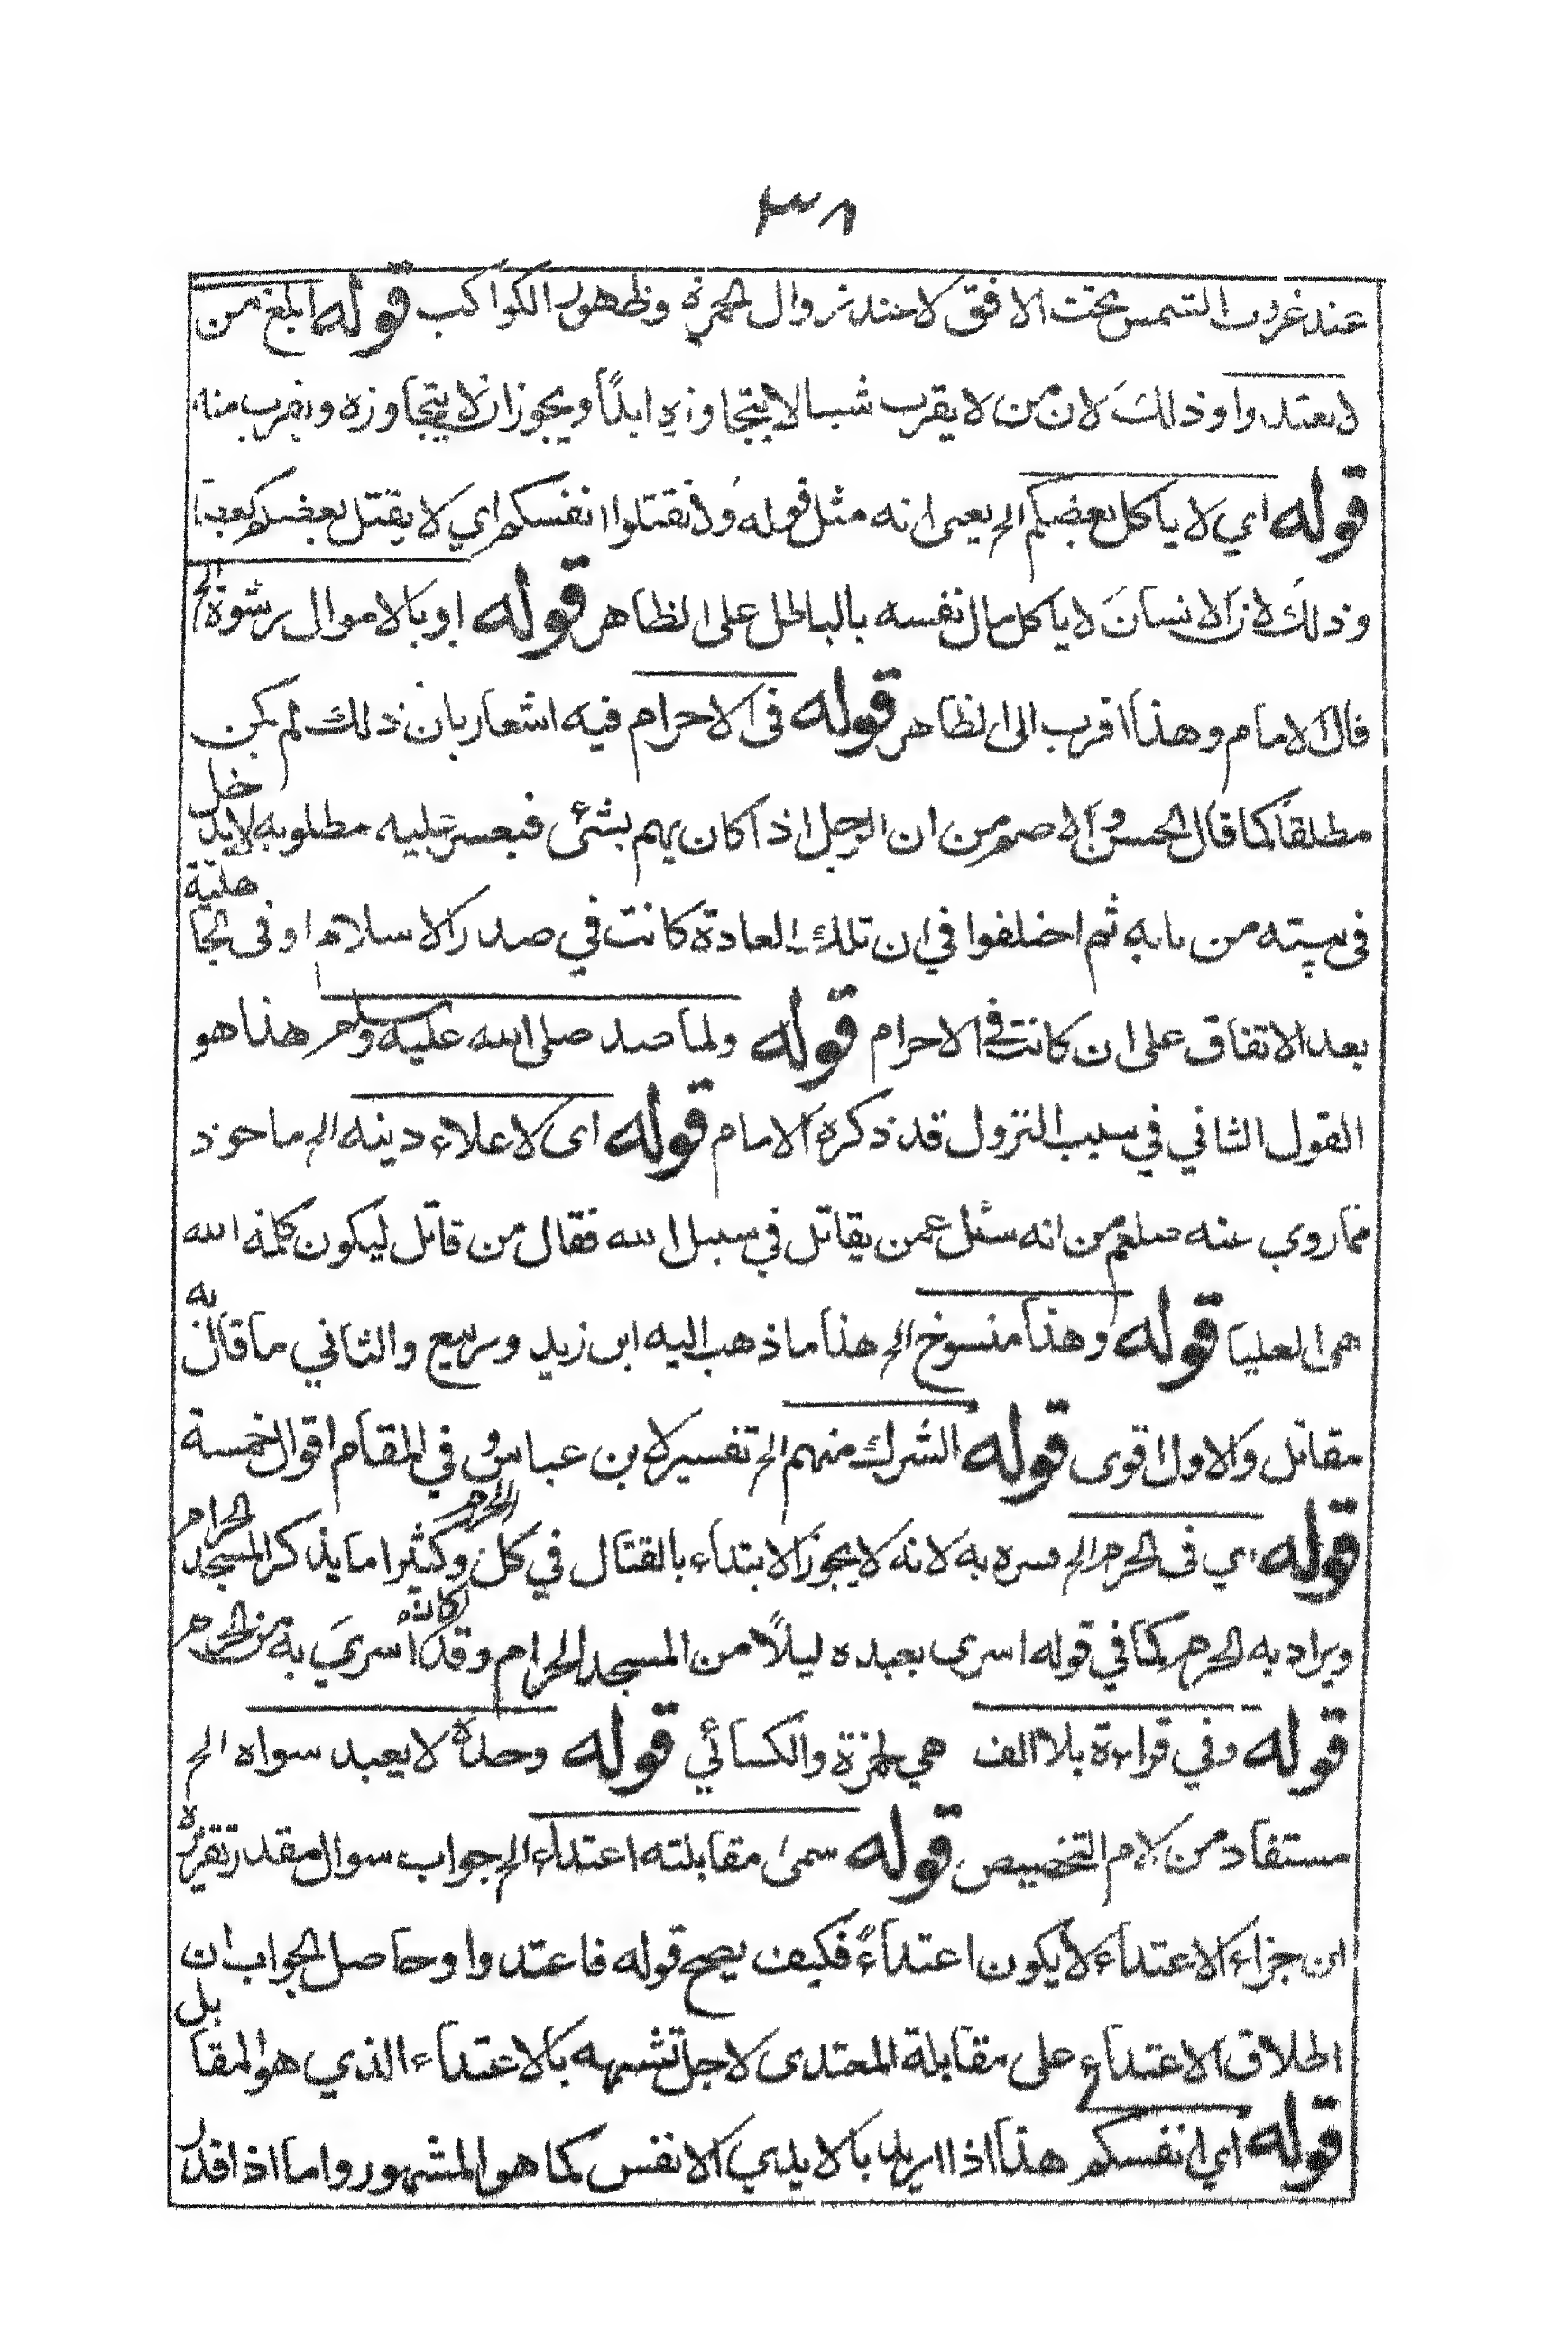 ٣٨
عند غروب الشمس تحت الافق لا عند زوال الحمرة وظهور الكواكب قوله ابلغ من
لا تعتدوا وذلك لان من لا يقرب شيئا لا يتجاوزه ابدًا ويجوز ان لا يتجاوزه ويقرب منه
قوله اي لا ياكل بعضكم الخ يعني انه مثل قوله ولا تقتلوا انفسكم اي لا يقتل بعضكم بعضا
وذلك لان الانسان لا ياكل مال نفسه بالباطل على الظاهر قوله او بالاموال رشوة الخ
قال الامام وهذا اقرب الى الظاهر قوله في الاحرام فيه اشعار بان ذلك لم يكن
مطلقا كما قال الحسن والاصم من ان الرجل اذا كان يهم بشئ فيعسر عليه مطلوبه لا يدخل
في بيته من بابه ثم اختلفوا في ان تلك العادة كانت في صدر الاسلام او في الجاهلية
بعد الاتفاق على ان كانت في الاحرام قوله ولما صد صلى الله عليه وسلم هذا هو
القول الثاني في سبب النزول قد ذكره الامام قوله اى لاعلاء دينه الخ ماخوذ
مما روي عنه صلعم من انه سئل عمن يقاتل في سبيل الله فقال من قاتل ليكون كلمة الله
هي العليا قوله وهذا منسوخ الخ هذا ما ذهب اليه ابن زيد وربيع والثاني ما قال به
مقاتل والاول اقوى قوله الشرك منهم الخ تفسير لابن عباس وفي المقام اقوال خمسة
قوله اي في الحرم الخ فسره به لانه لا يجوز الابتداء بالقتال في كل الحرم وكثيرا ما يذكر المسجد الحرام
ويراد به الحرم كما في قوله اسرى بعبده ليلًا من المسجد الحرام وقد كان اسري به من الحرم
قوله وفي قراءة بلا الف هي لحمزة والكسائي قوله وحده لا يعبد سواه الخ
مستفاد من لام التخصيص قوله سمى مقابلته اعتداء الخ جواب سوال مقدر تقريره
ان جزاء الاعتداء لا يكون اعتداءً فكيف يصح قوله فاعتدوا وحاصل الجواب ان
اطلاق الاعتداء على مقابلة المعتدى لاجل تشبهه بالاعتداء الذي هو المقابل
قوله اي انفسكم هذا اذا اريد بالايدي الانفس كما هو المشهور واما اذا قدر